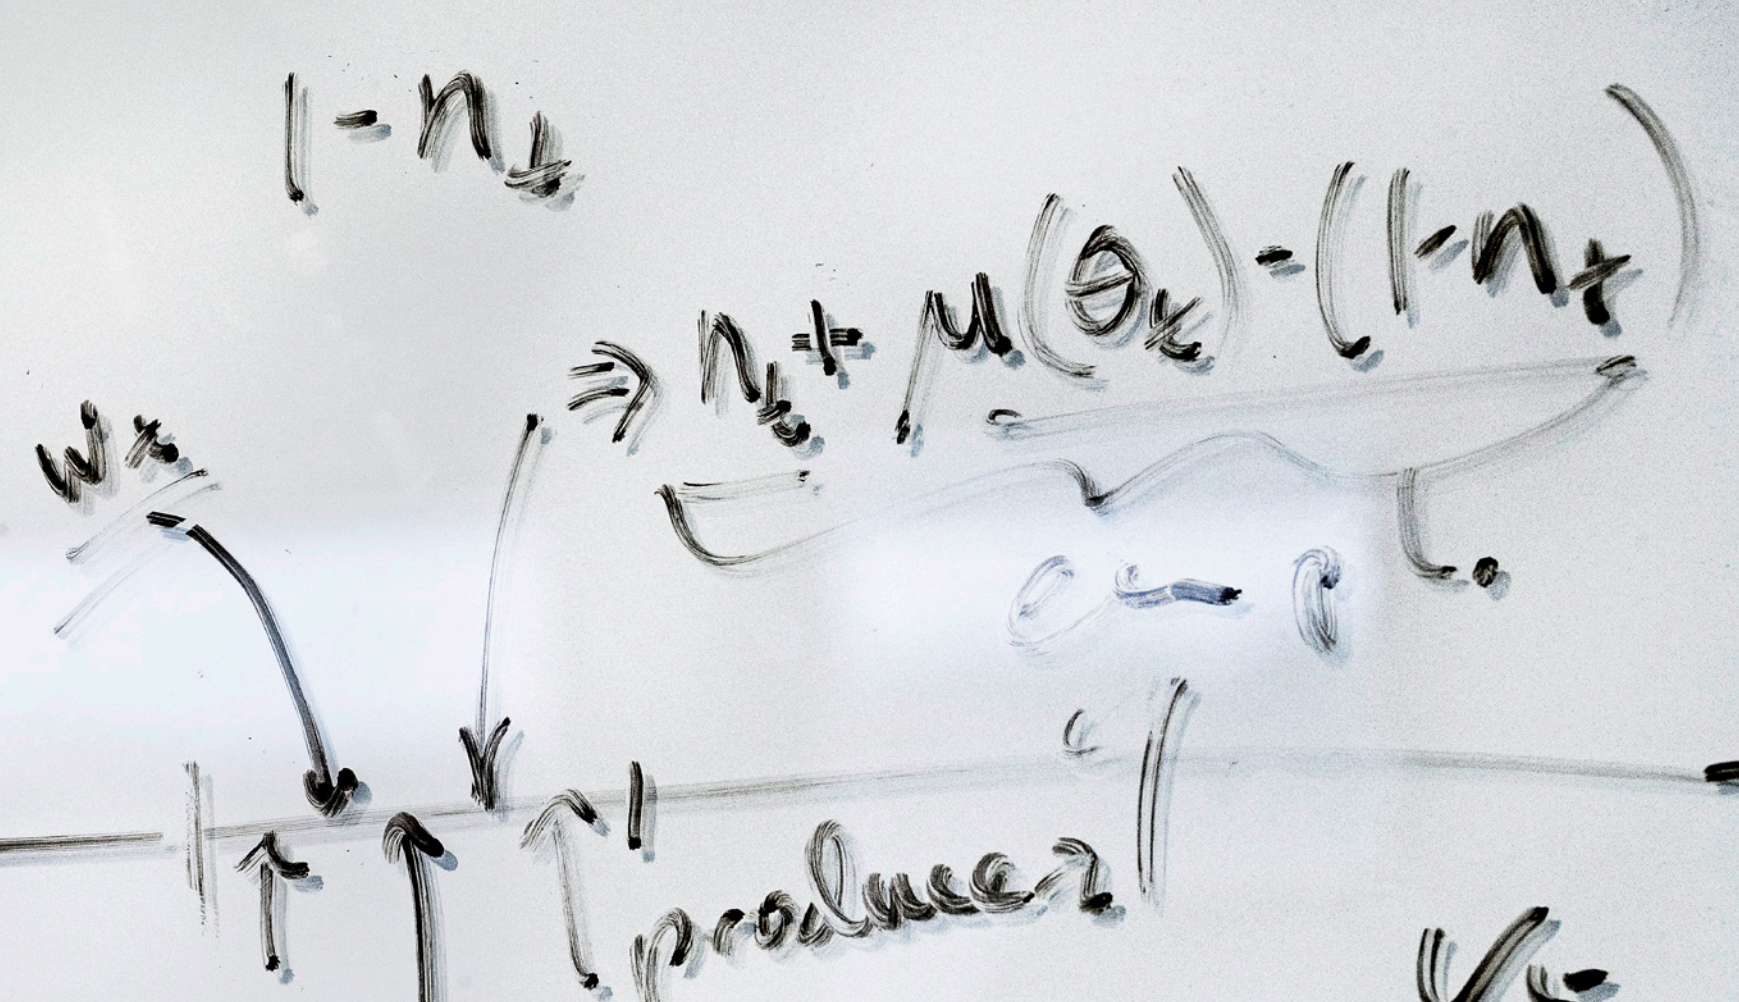 1 - n_t
⇒ n_t + μ(θ_t) - (1 - n_t)
w_t
produces